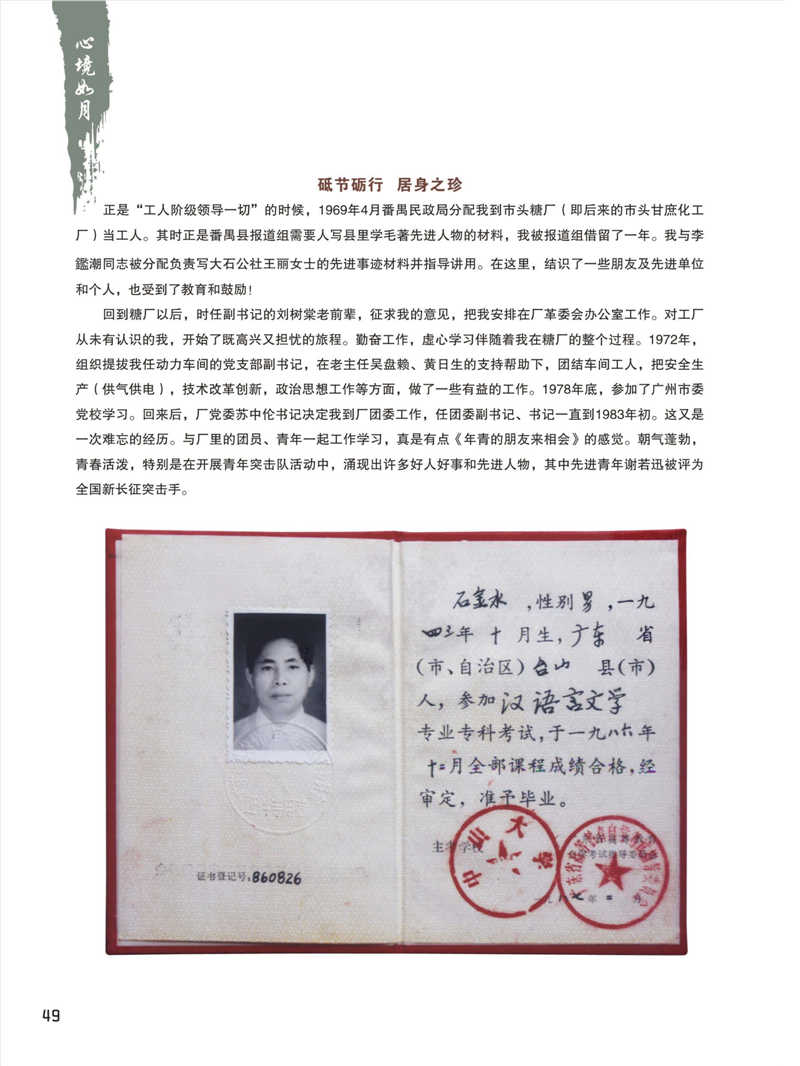 心境如月
砥节砺行 居身之珍
正是“工人阶级领导一切”的时候，1969年4月番禺民政局分配我到市头糖厂（即后来的市头甘庶化工
厂）当工人。其时正是番禺县报道组需要人写县里学毛著先进人物的材料，我被报道组借留了一年。我与李
鑑潮同志被分配负责写大石公社王丽女士的先进事迹材料并指导讲用。在这里，结识了一些朋友及先进单位
和个人，也受到了教育和鼓励！
回到糖厂以后，时任副书记的刘树棠老前辈，征求我的意见，把我安排在厂革委会办公室工作。对工厂
从未有认识的我，开始了既高兴又担忧的旅程。勤奋工作，虚心学习伴随着我在糖厂的整个过程。1972年，
组织提拔我任动力车间的党支部副书记，在老主任吴盘赖、黄日生的支持帮助下，团结车间工人，把安全生
产（供气供电），技术改革创新，政治思想工作等方面，做了一些有益的工作。1978年底，参加了广州市委
党校学习。回来后，厂党委苏中伦书记决定我到厂团委工作，任团委副书记、书记一直到1983年初。这又是
一次难忘的经历。与厂里的团员、青年一起工作学习，真是有点《年青的朋友来相会》的感觉。朝气蓬勃，
青春活泼，特别是在开展青年突击队活动中，涌现出许多好人好事和先进人物，其中先进青年谢若迅被评为
全国新长征突击手。
石金水，性别男，一九
四三年十月生，广东省
（市、自治区）台山县（市）
人，参加汉语言文学
专业专科考试，于一九八六年
十二月全部课程成绩合格，经
审定，准予毕业。
主考学校
中山大学
证书登记号：860826
一九八七年二月
49